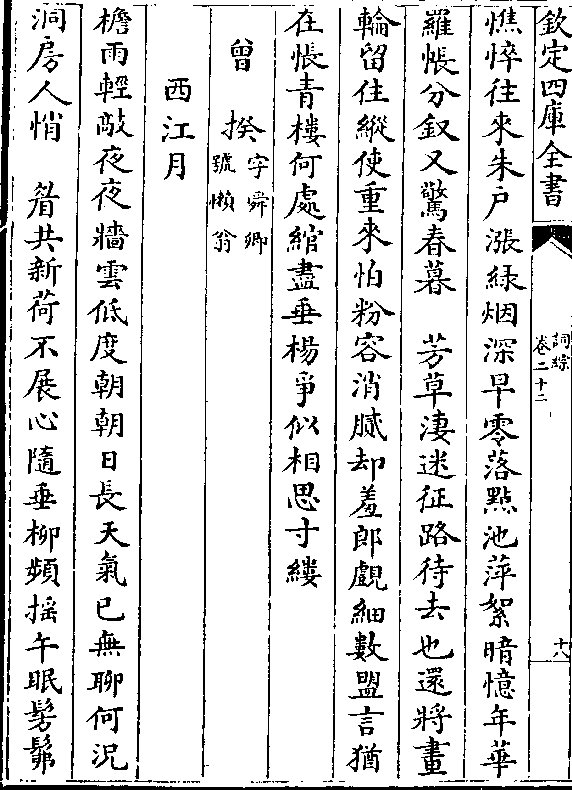 欽定四庫全書
詞綜
卷二十二
十八
憔悴往來朱户漲緑烟深早零落㸃池萍絮暗憶年華
羅帳分釵又驚春暮　芳草淒迷征路待去也還將畫
輪留住縱使重來怕粉容消膩却羞郎覷細數盟言猶
在悵青樓何處綰盡垂楊爭似相思寸縷
曾　揆
字舜卿
號懶翁
西江月
檐雨輕敲夜夜牆雲低度朝朝日長天氣已無聊何况
洞房人悄　眉共新荷不展心隨垂柳頻揺午眠髣髴